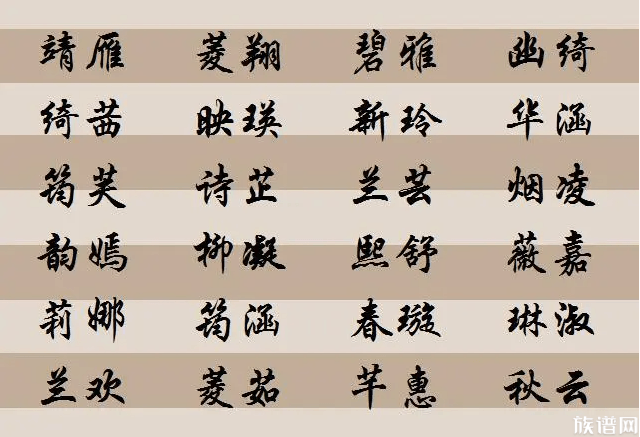 靖雁 菱翔 碧雅 幽绮
绮茜 映瑛 新玲 华涵
筠芙 诗芷 兰芸 烟凌
韵嫣 柳凝 熙舒 薇嘉
莉娜 筠涵 春璇 琳淑
兰欢 菱茹 芊惠 秋云
族谱网